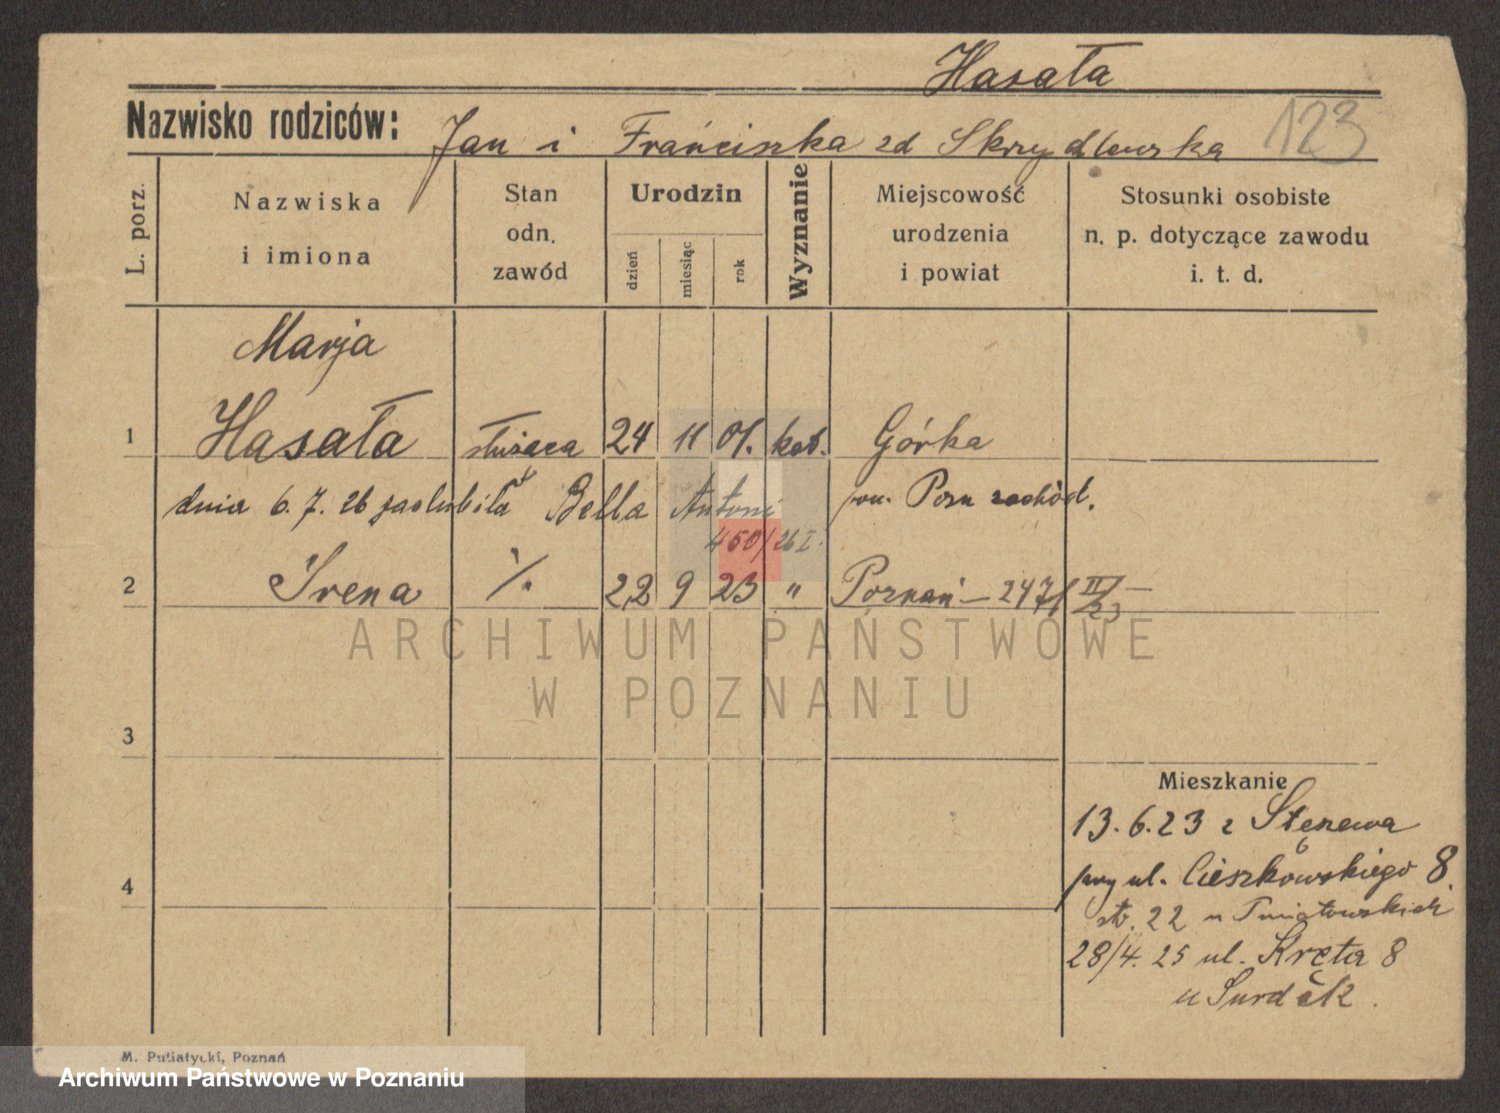 Hasała
123
Nazwisko rodziców: Jan i Franciszka zd Skrzydlewska
L. porz.
Nazwiska
i imiona
Stan
odn.
zawód
Urodzin
dzień
miesiąc
rok
Wyznanie
Miejscowość
urodzenia
i powiat
Stosunki osobiste
n. p. dotyczące zawodu
i. t. d.
Marja
1 Hasała służąca 24 11 01. kat. Górka
dnia 6.7.26 zaślubiła Bella Antoni pow. Pozn zachód.
450/26 I.
2 Irena ·/. 22 9 23 " Poznań – 247/ II/23
ARCHIWUM PAŃSTWOWE
W POZNANIU
3
Mieszkanie
13.6.23 z Stęszewa
4 przy ul. Cieszkowskiego 8.
22 u
28/4.25 ul. Kręta 8
u
M. Putiatycki, Poznań
Archiwum Państwowe w Poznaniu